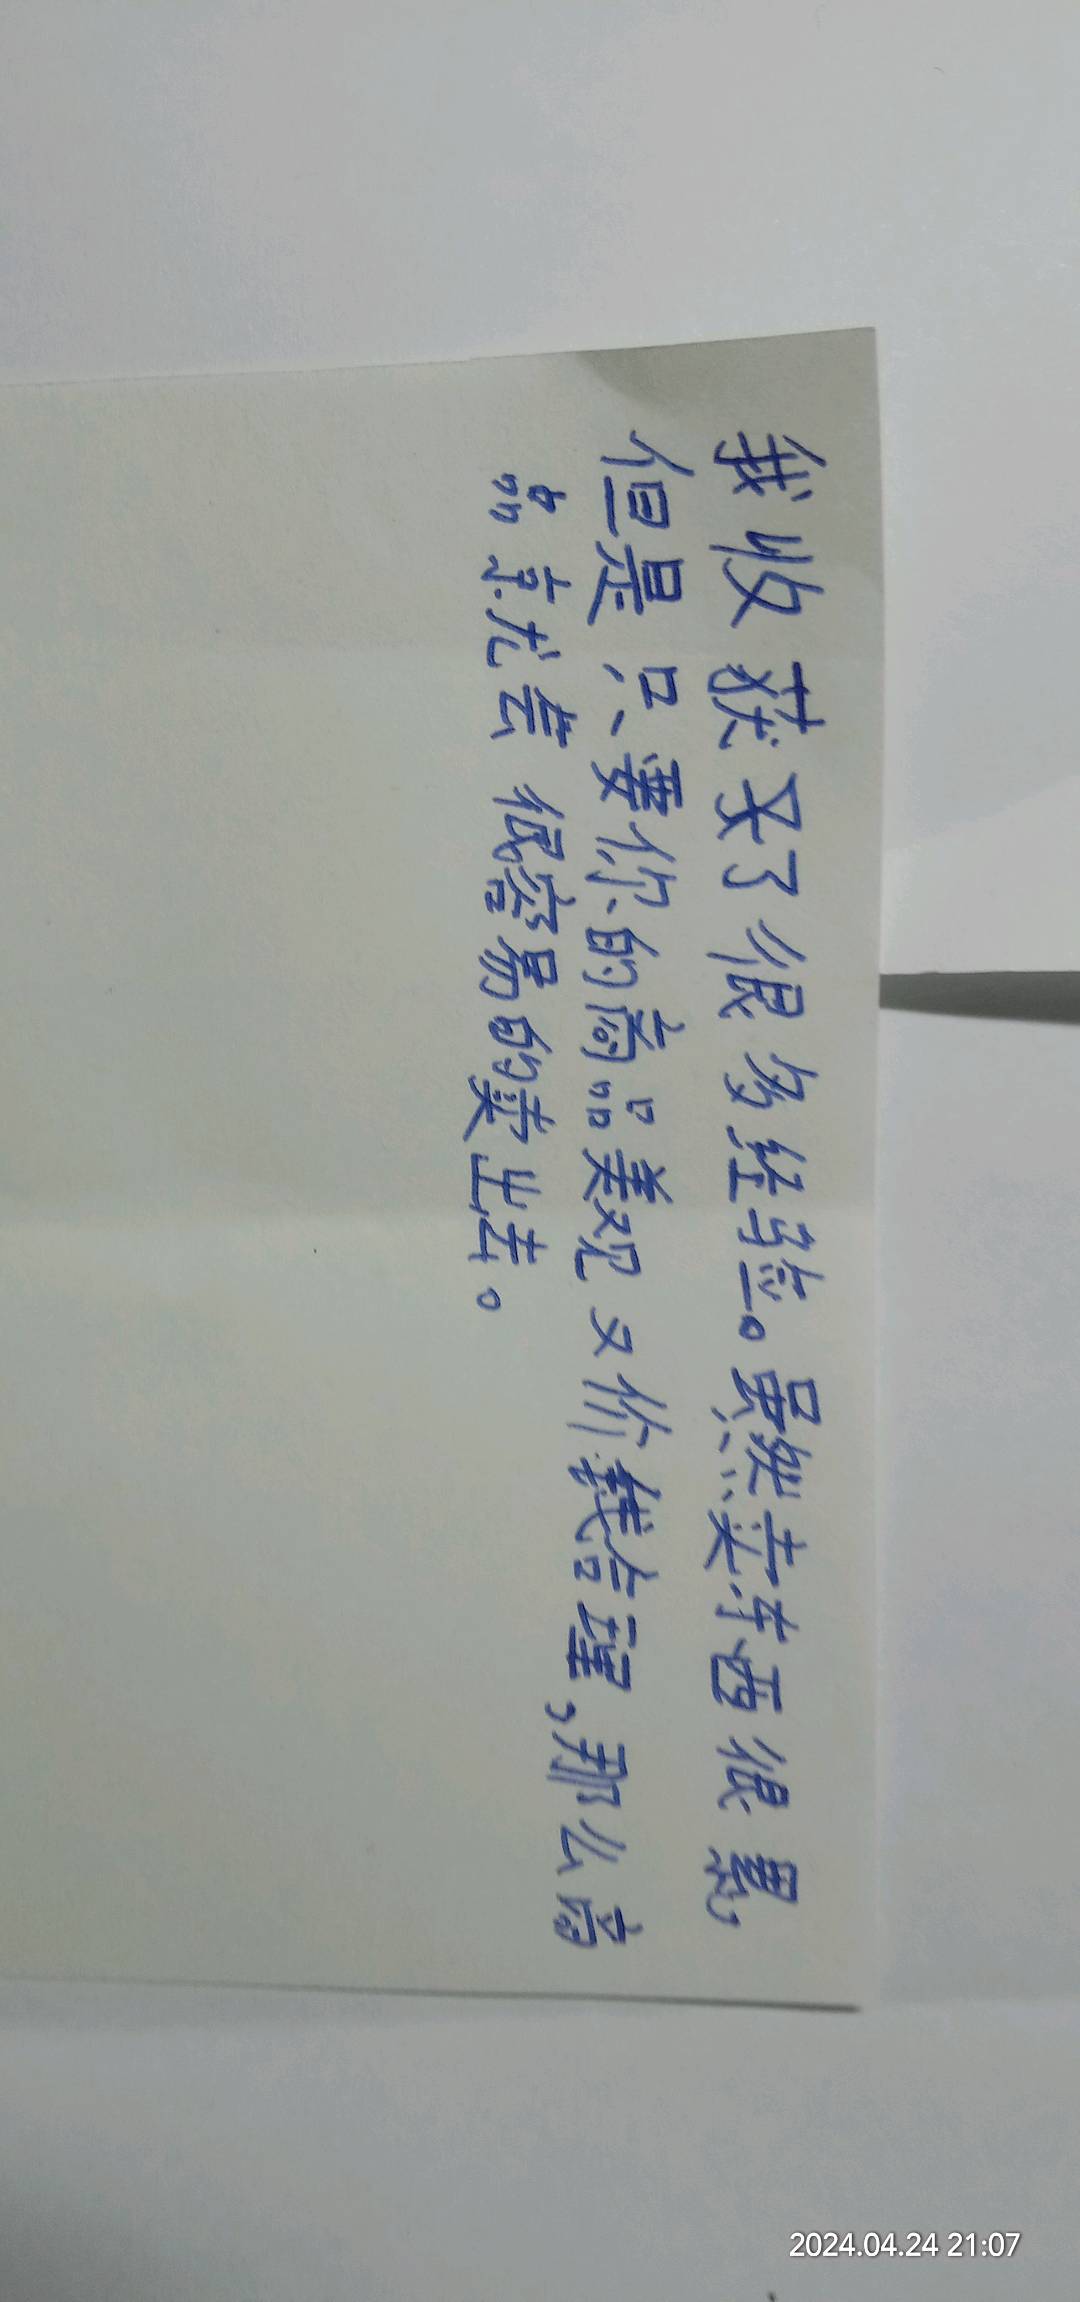 我收获又了很多经验。虽然卖东西很累,
但是只要你的商品美观又价钱合理,那么商
品就会很容易的卖出去。
2024.04.24 21:07